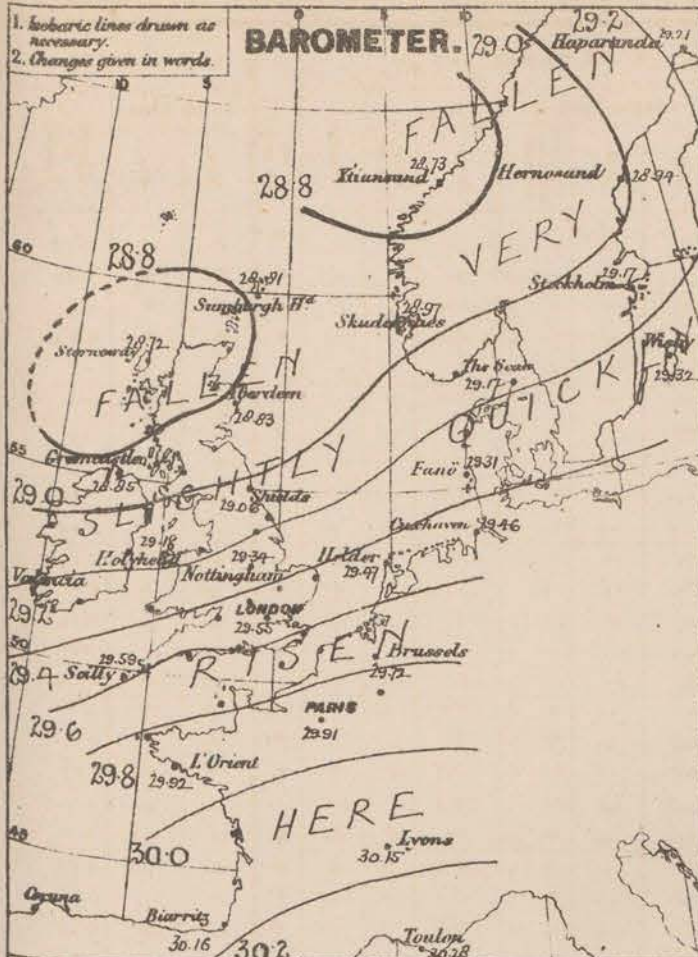 1. Isobaric lines drawn as
necessary.
2. Changes given in words.
BAROMETER.
0
5
10
10
5
29.0
29.2
Haparanda
29.21
FALLEN
28.8
28.73
Xtiansund
Hernosand
28.94
VERY
60
28.8
28.81
Sumburgh Hd.
Stockholm
29.17
28.97
Skudesnaes
Stornoway
28.72
FALLEN
Aberdeen
28.83
The Scaw
29.17
Wisby
29.32
QUICKLY
55
Greencastle
28.85
29.0
SLIGHTLY
Shields
29.06
Fanö
29.31
Cuxhaven
29.46
29.18
Holyhead
29.34
Nottingham
Helder
29.47
Valencia
29.2
LONDON
29.55
50
29.4
Scilly
29.59
RISEN
Brussels
29.72
29.6
PARIS
29.91
29.8
L'Orient
29.92
HERE
45
30.0
Lyons
30.15
Coruna
Biarritz
30.16
30.2
Toulon
30.28